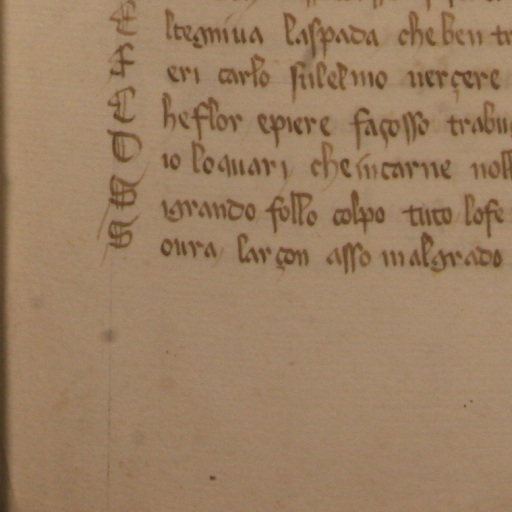 E ltegniva laspada che ben tr
F eri carlo sulelmo verçere
C heflor epiere façosso trabu
D io lo guari che in carne noll
S igrando follo colpo tuto lofe
S oura larçon asso malgrado